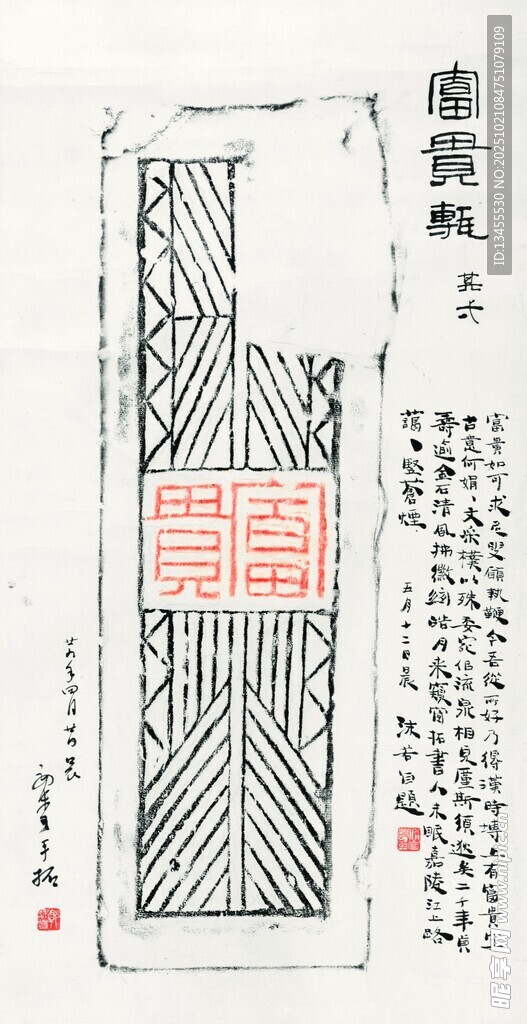 富貴甎
其弍
富貴如可求尼叟願執鞭今吾從所好乃得漢時塼上有富貴字
古意何娟、文采樸以殊委宛佀流泉相見廑斯須逖矣二千年貞
壽逾金石清風拂徽絃皓月来窺窗拓書人未眠嘉陵江上路
藹、豎蒼煙 五月十二日晨 沫若自題
富貴
廿九年四月廿日晨
手拓
ID:13455530 NO:20251021084751079109
昵享网 www.nipic.cn